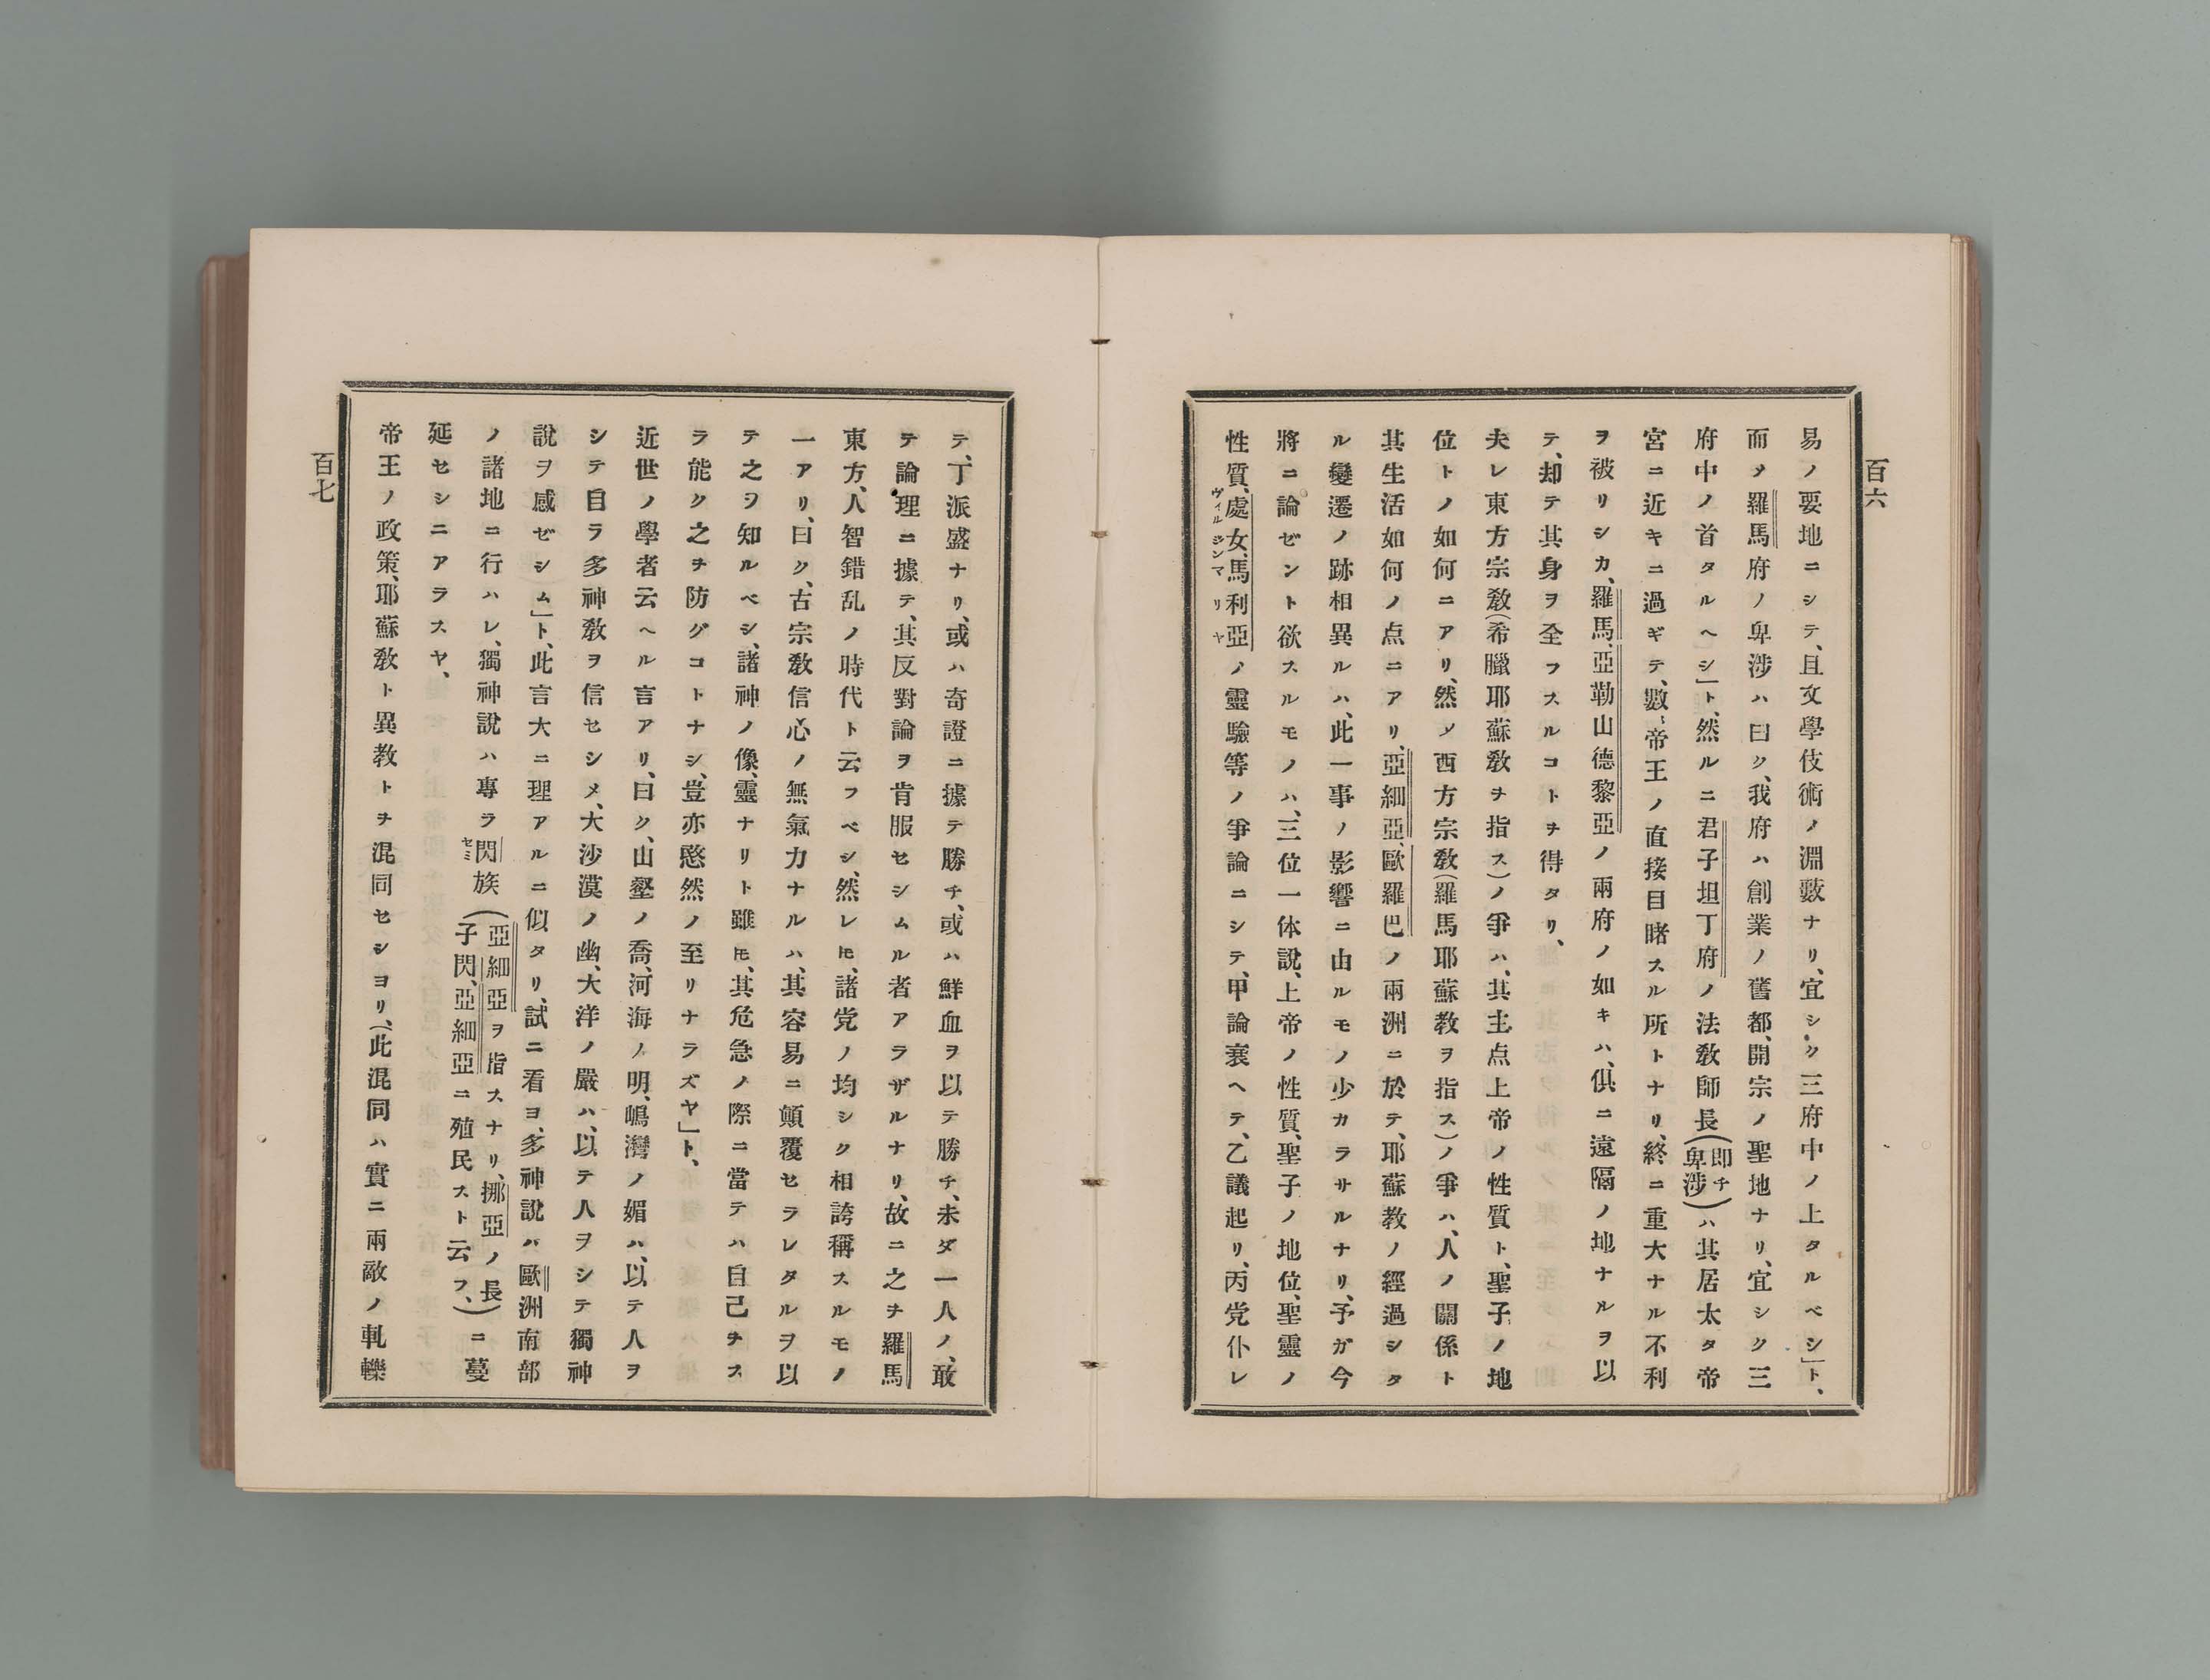 百六
易ノ要地ニシテ、且文學伎術ノ淵藪ナリ、宜シク三府中ノ上タルベシ」ト、
而〆羅馬府ノ卑涉ハ曰ク、我府ハ創業ノ舊都、開宗ノ聖地ナリ、宜シク三
府中ノ首タルヘシ」ト、然ルニ君子坦丁府ノ法敎師長(即チ卑涉)ハ其居太タ帝
宮ニ近キニ過ギテ、數〻帝王ノ直接目睹スル所トナリ、終ニ重大ナル不利
ヲ被リシカ、羅馬、亞勒山德黎亞ノ兩府ノ如キハ、俱ニ遠隔ノ地ナルヲ以
テ、却テ其身ヲ全フスルコトヲ得タリ、
夫レ東方宗敎(希臘耶蘇敎ヲ指ス)ノ爭ハ、其主点上帝ノ性質ト、聖子ノ地
位トノ如何ニアリ、然〆西方宗敎(羅馬耶蘇敎ヲ指ス)ノ爭ハ、人ノ關係ト
其生活如何ノ点ニアリ、亞細亞、歐羅巴ノ兩洲ニ於テ、耶蘇敎ノ經過シタ
ル變遷ノ跡相異ルハ、此一事ノ影響ニ由ルモノ少カラサルナリ、予ガ今
將ニ論ゼント欲スルモノハ、三位一体說、上帝ノ性質、聖子ノ地位、聖靈ノ
性質、處女、馬利亞ノ靈驗等ノ爭論ニシテ、甲論衰ヘテ、乙議起リ、丙党仆レ
ヴィルジンマリヤ
テ、丁派盛ナリ、或ハ奇證ニ據テ勝チ、或ハ鮮血ヲ以テ勝チ、未ダ一人ノ、敢
テ論理ニ據テ、其反對論ヲ肯服セシムル者アラザルナリ、故ニ之ヲ羅馬
東方、人智錯乱ノ時代ト云フベシ、然レ𪜈、諸党ノ均シク相誇稱スルモノ
一アリ、曰ク、古宗敎信心ノ無氣力ナルハ、其容易ニ顚覆セラレタルヲ以
テ之ヲ知ルベシ、諸神ノ像、靈ナリト雖𪜈、其危急ノ際ニ當テハ自己ヲス
ラ能ク之ヲ防グコトナシ、豈亦愍然ノ至リナラズヤ」ト、
近世ノ學者云ヘル言アリ、曰ク、山壑ノ喬、河海ノ明、嶋灣ノ媚ハ、以テ人ヲ
シテ自ラ多神敎ヲ信セシメ、大沙漠ノ幽、大洋ノ嚴ハ、以テ人ヲシテ獨神
說ヲ感ゼシム」ト、此言大ニ理アルニ似タリ、試ニ看ヨ、多神說ハ歐洲南部
ノ諸地ニ行ハレ、獨神說ハ專ラ閃族(亞細亞ヲ指スナリ、挪亞ノ長子閃、亞細亞ニ殖民スト云フ、)ニ蔓
セミ
延セシニアラスヤ、
帝王ノ政策、耶蘇敎ト異敎トヲ混同セシヨリ、(此混同ハ實ニ兩敵ノ軋轢
百七